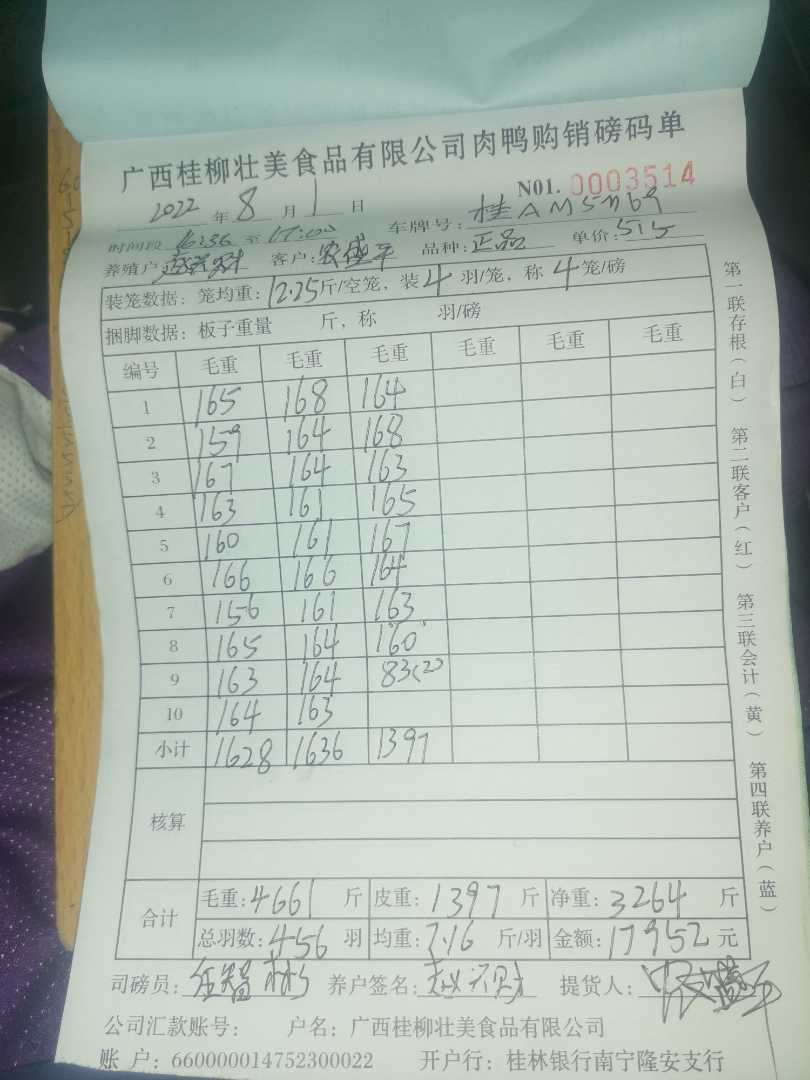 广西桂柳壮美食品有限公司肉鸭购销磅码单
2022 年 8 月 1 日 N01. 0003514
时间段 16:36 至 17:00 车牌号: 桂AM5
养殖户: 客户: 农盛平 品种: 正品 单价: 5.5
装笼数据: 笼均重: 12.25 斤/空笼, 装 4 羽/笼, 称 4 笼/磅
捆脚数据: 板子重量 斤, 称 羽/磅
编号 毛重 毛重 毛重 毛重 毛重 毛重
1 165 168 164
2 159 164 168
3 167 164 163
4 163 161 165
5 160 161 167
6 166 166 164
7 156 161 163
8 165 164 160
9 163 164 83(2)
10 164 163
小计 1628 1636 1397
核算
合计 毛重: 4661 斤 皮重: 1397 斤 净重: 3264 斤
总羽数: 456 羽 均重: 7.16 斤/羽 金额: 17952 元
司磅员: 养户签名: 提货人:
公司汇款账号: 户名: 广西桂柳壮美食品有限公司
账 户: 660000014752300022 开户行: 桂林银行南宁隆安支行
第一联存根(白) 第二联客户(红) 第三联会计(黄) 第四联养户(蓝)